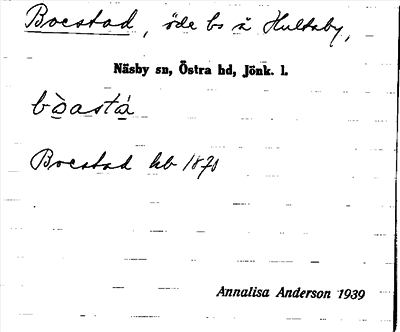 Boestad, öde bs å Hultaby,
Näsby sn, Östra hd, Jönk. l.
bo̱̊̀astǻ̱
Boestad hb 1870
Annalisa Anderson 1939